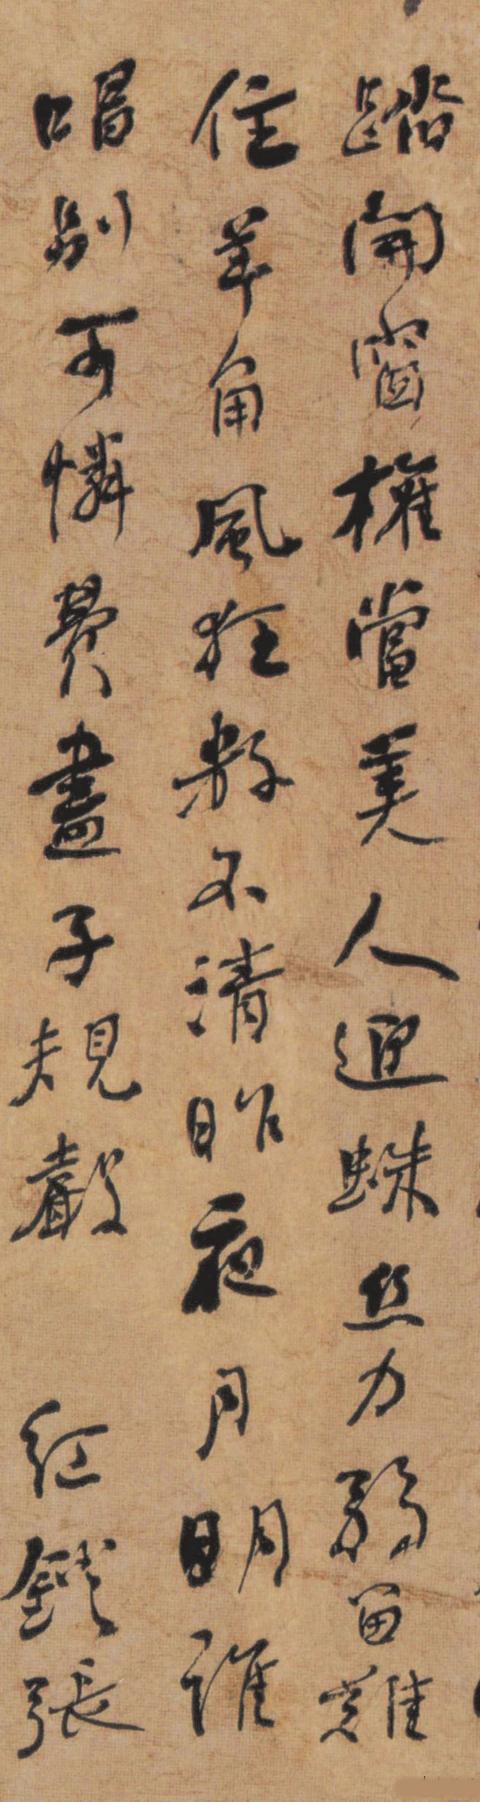 踏開窗権當美人迎蛛絲力弱留難
住羊角風狂數不清昨夜月明誰
唱別可憐費盡子規聲 紅鎖張